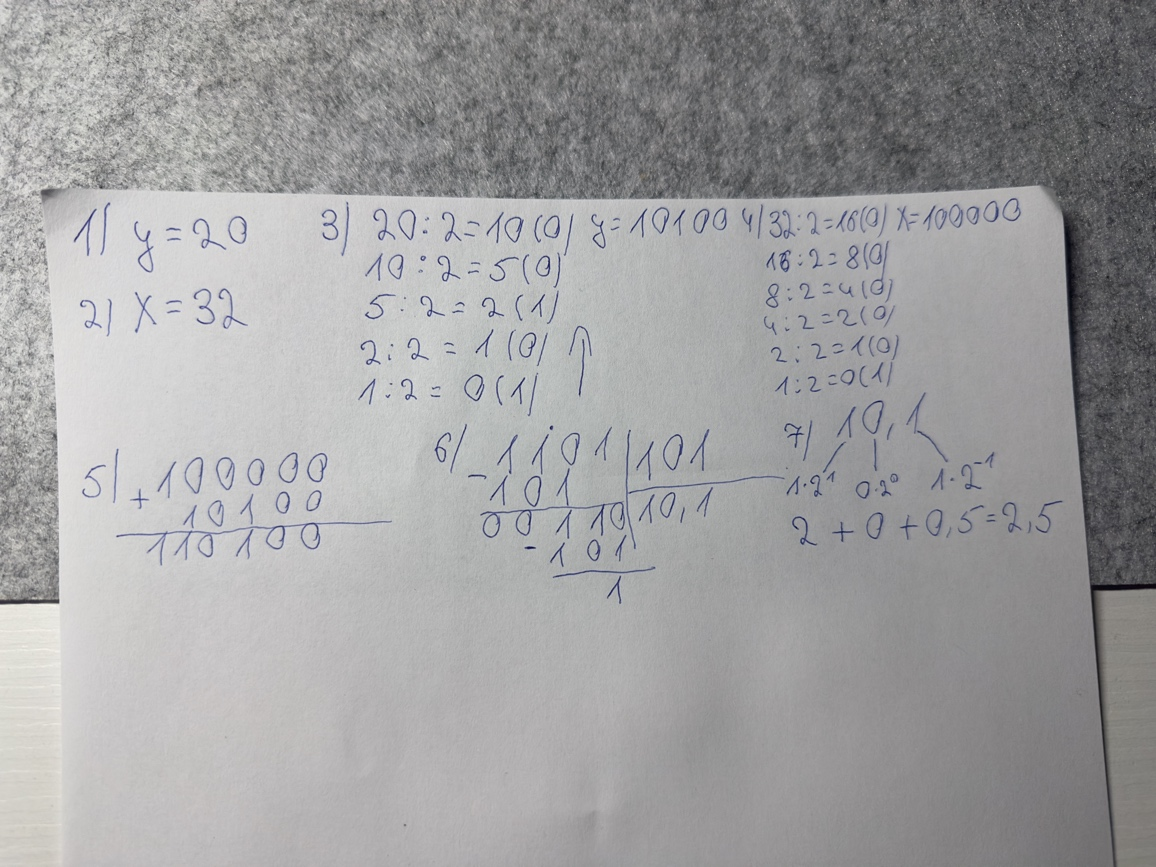 1) y = 20
2) x = 32
3) 20 : 2 = 10 (0) y = 10100
10 : 2 = 5 (0)
5 : 2 = 2 (1)
2 : 2 = 1 (0)
1 : 2 = 0 (1)
4) 32 : 2 = 16 (0) x = 100000
16 : 2 = 8 (0)
8 : 2 = 4 (0)
4 : 2 = 2 (0)
2 : 2 = 1 (0)
1 : 2 = 0 (1)
5) + 100000
10100
110100
6) - 1101 | 101
101
00110 | 10,1
- 101
1
7) 10,1
1·2¹ 0·2⁰ 1·2⁻¹
2 + 0 + 0,5 = 2,5